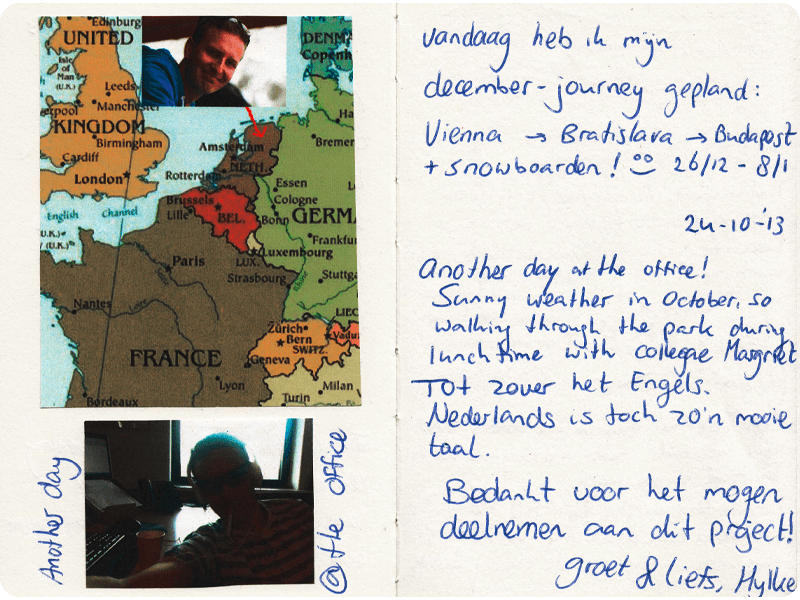 Edinburg
UNITED
Isle
of
Man
(U.K.)
Leeds
erpool
Manchester
KINGDOM
Birmingham
Cardiff
London
English Channel
U.K.)
(U.K.)
DENM
Copenh
Ha
Bremer
Amsterdam
NETH.
Rotterdam
Essen
Brussels
Cologne
Lille
BEL.
Bonn
GERMA
Frankfu
Luxembourg
LUX.
Paris
Strasbourg
Stuttg
Nantes
LIEC
Zürich
Vaduz
Bern
SWITZ.
FRANCE
Geneva
Lyon
Milan
Turin
Bordeaux
Another day
@ the office
vandaag heb ik mijn
december-journey gepland:
Vienna → Bratislava → Budapest
+ snowboarden! 26/12 - 8/1
24-10-'13
Another day at the office!
Sunny weather in October, so
walking through the park during
lunchtime with collegae Margriet
Tot zover het Engels.
Nederlands is toch zo'n mooie
taal.
Bedankt voor het mogen
deelnemen aan dit project!
groet & liefs, Hylke